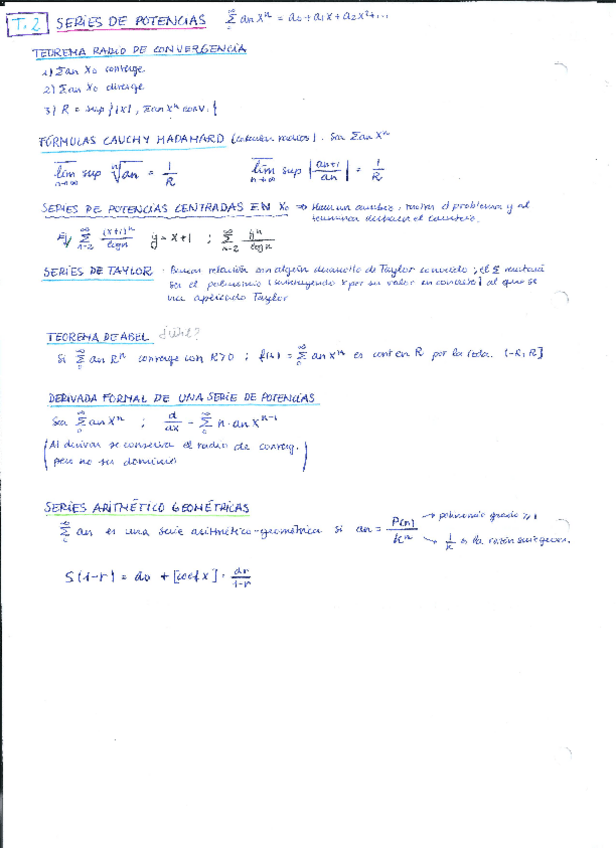 T.2 SERIES DE POTENCIAS ∞ Σ 0 an xⁿ = a0 + a1x + a2x² + ...
TEOREMA RADIO DE CONVERGENCIA
1) Σan X0 converge
2) Σan X0 diverge
3) R = sup {|x|, Σan xⁿ conv. {
FÓRMULAS CAUCHY HADAMARD (calculan radios). Sea Σan Xⁿ
lim n→∞ sup ⁿ√an = 1/R lim n→∞ sup |an+1/an| = 1/R
SERIES DE POTENCIAS CENTRADAS EN X0 → Hacer un cambio, el problema y al
terminar deshacer el cambio.
Ej/ ∞ Σ n=2 (x+1)ⁿ/logn y = x+1 ; ∞ Σ n=2 yⁿ/logn
SERIES DE TAYLOR : Buscar relación con algún desarrollo de Taylor conocido ; el Σ
sea el polinomio (sustituyendo x por su valor en concreto) al que se
ha aplicado Taylor
TEOREMA DE ABEL ¿útil?
Si ∞ Σ 0 an Rⁿ converge con R>0 ; f(x) = ∞ Σ 0 an xⁿ es cont en R por la izda. (-R, R]
DERIVADA FORMAL DE UNA SERIE DE POTENCIAS
Sea ∞ Σ 0 an Xⁿ ; d/dx = ∞ Σ 0 n·an Xⁿ⁻¹
(Al derivar se conserva el radio de converg.
pero no su dominio)
SERIES ARITMÉTICO GEOMÉTRICAS
∞ Σ 0 an es una serie aritmético-geométrica si an = P(n)/kⁿ → polinomio grado ≥1
→ 1/k es la razón serie geom.
S(1-r) = a0 + [coef x] · dr/1-r